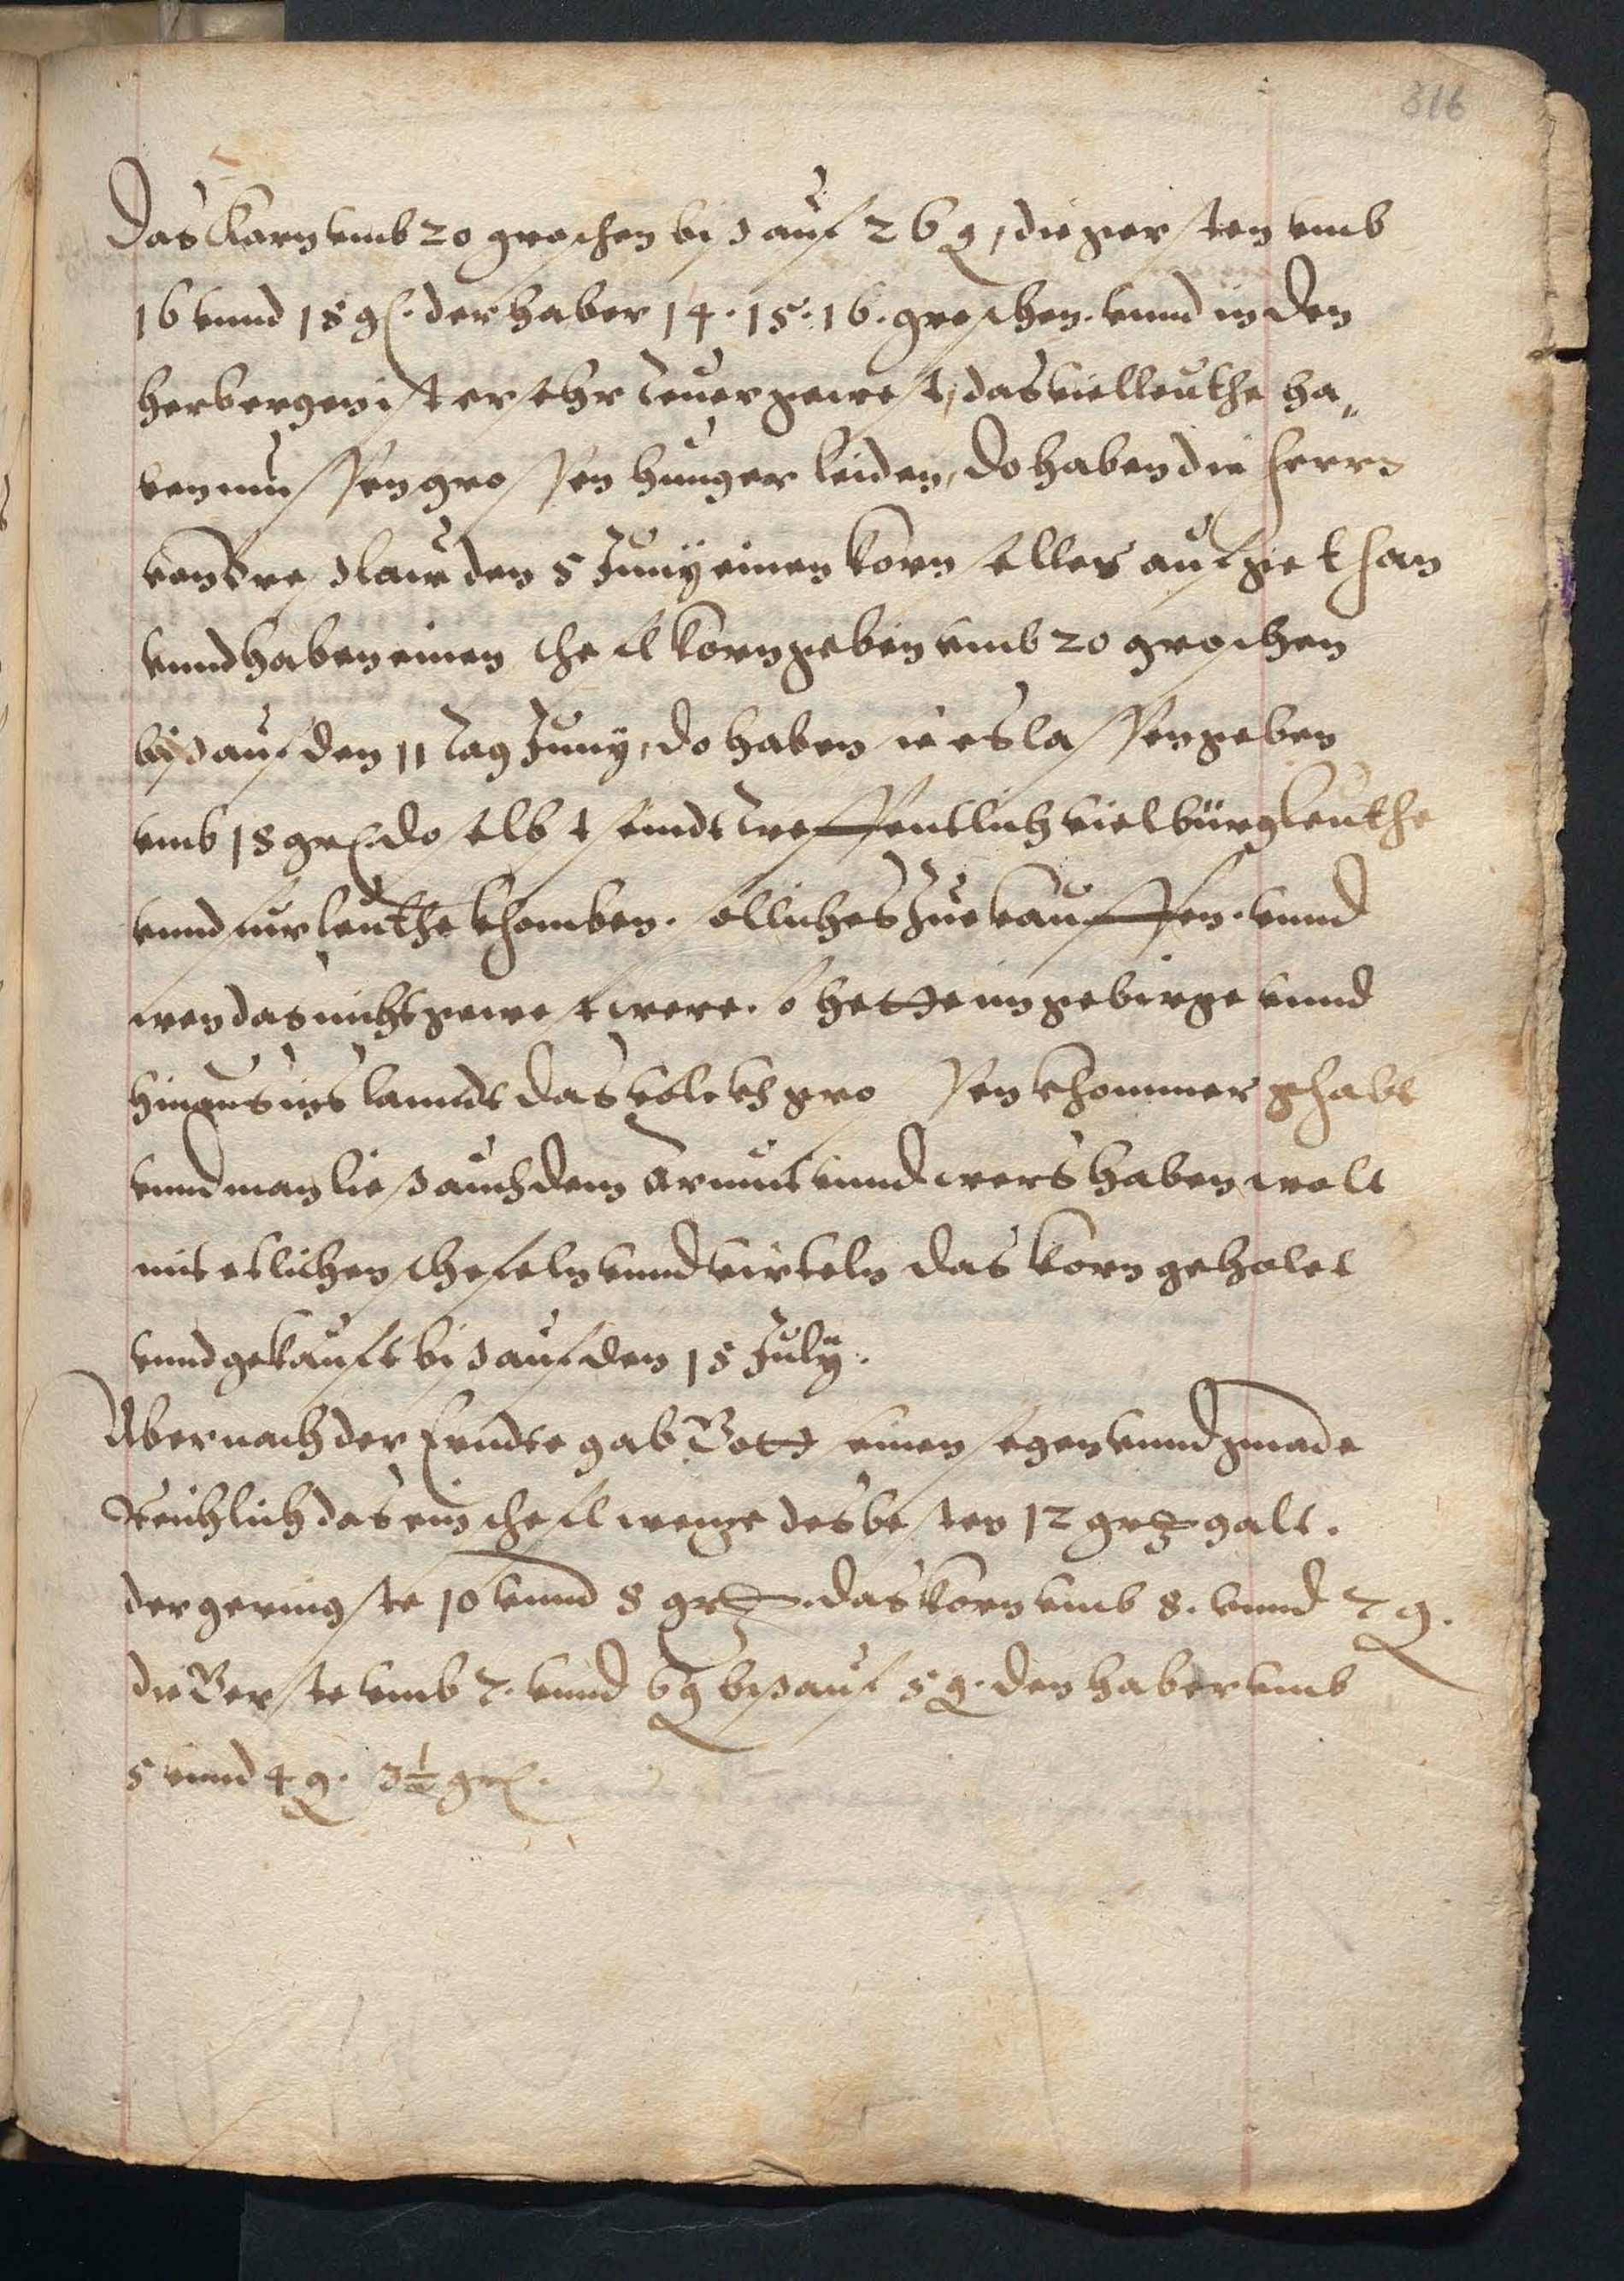 316
Das Korn vmb 20 groschen biß auf 26 g, die gersten vmb
16 vnnd 18 gl. der haber 14. 15. 16. groschen. vnnd in den
herbergen ist er sehr teuer gewest, das viel leuthe ha„
ben mussen grossen hunger leiden, do haben die herrn
von Breslaw den 5 Juny einen korn seller auf gethan
vnnd haben einen schefl korn geben vmb 20 groschen
biß auf den 11 tag Juny, do haben sie es lassen geben
vmb 18 grl. doselbst seindt treffentlich viel bürgleuthe
vnnd furleuthe khomben. solliches zue kauffen. vnnd
wen das nicht gewest were. so hette im gebirge vnnd
hinaus ins landt das volckh grossen khommer gehabt
vnnd man ließ auch dem armut vnnd wers haben wolt
mit etlichen schefeln vnnd virteln das korn geholet
vnnd gekauft biß auf den 15 July.
Aber nach der Erndte gab Gott seinen segen vnnd gnade
Reichlich das ein schefl weize des besten 12 gr galt.
der geringste 10 vnnd 8 gr. das korn vmb 8. vnnd 7 g.
die Gerste vmb 7. vnnd 6 g biß auf 5 g. den haber vmb
5 vnnd 4 g. 3½ grl.